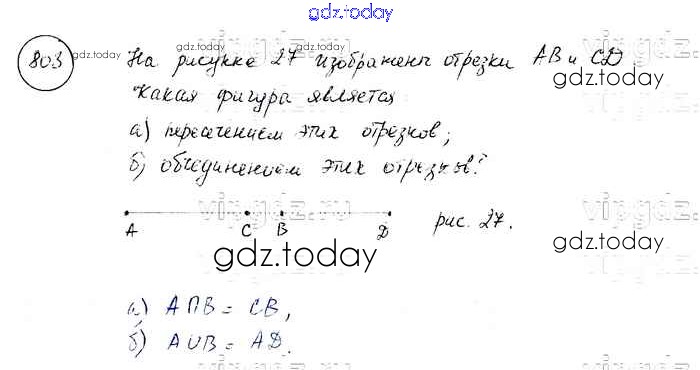 gdz.today
803 На рисунке 27 изображены отрезки AB и CD
Какая фигура является
а) пересечением этих отрезков;
б) объединением этих отрезков?
A C B D рис. 27.
gdz.today
gdz.today
а) A∩B = CB,
б) A∪B = AD.